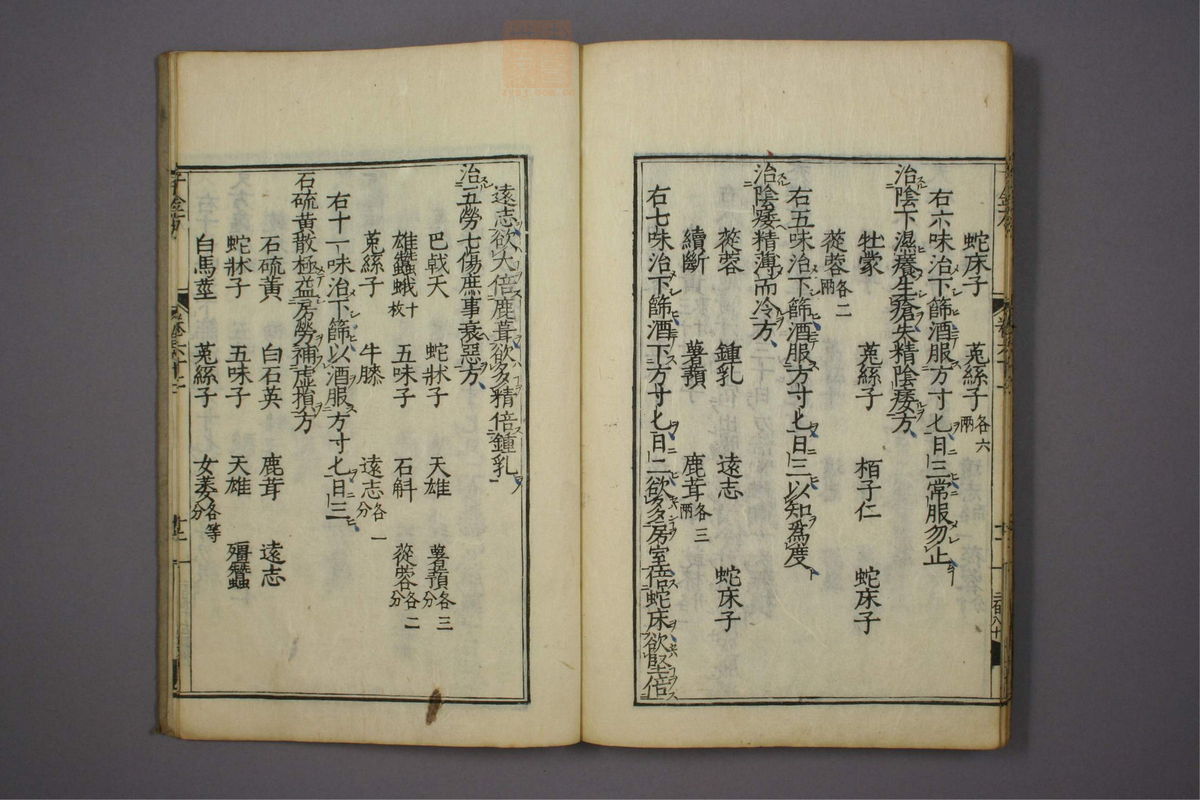 蛇床子 菟絲子各六兩
右六味治下篩酒服方寸匕日三常服勿止
治陰下濕癢生瘡失精陰痿方
牡蒙 菟絲子 栢子仁 蛇床子
蓯蓉各二兩
右五味治下篩酒服方寸匕日三以知爲度
治陰痿精薄而冷方
蓯蓉 鍾乳 遠志 蛇床子
續斷 薯蕷 鹿茸各三兩
右七味治下篩酒下方寸匕日二欲多房室倍蛇床欲堅倍
遠志欲大倍鹿茸欲多精倍鍾乳
治五勞七傷庶事衰惡方
巴戟天 蛇牀子 天雄 薯蕷各三分
雄蠶蛾十枚 五味子 石斛 蓯蓉各二分
菟絲子 牛膝 遠志各一分
右十一味治下篩以酒服方寸匕日三
石硫黄散極益房勞補虛損方
石硫黄 白石英 鹿茸 遠志
蛇牀子 五味子 天雄 殭蠶
白馬莖 菟絲子 女萎各等分
三百八十